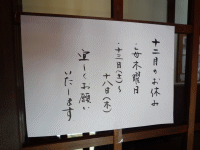 十二月のお休み
毎木曜日
十三日(土)〜
十八日(木)
宜しくお願い
いたします